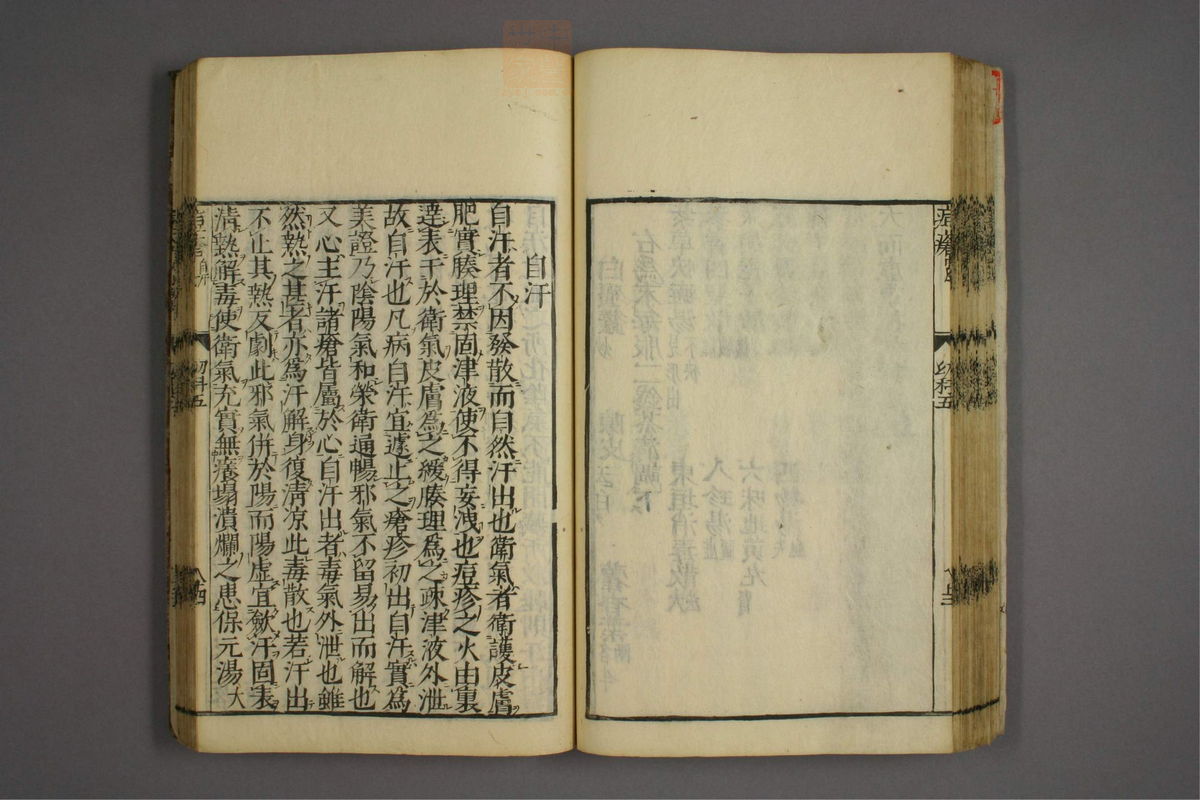 幼科五
自汗
自汗者不因發散而自然汗出也衛氣者衛護皮膚
肥實腠理禁固津液使不得妄洩也痘疹之火由裏
達表干於衛氣皮膚爲之緩腠理爲之疎津液外泄
故自汗也凡病自汗宜遽止之瘡疹初出自汗實爲
美證乃陰陽氣和榮衛通暢邪氣不留易出而解也
又心主汗諸瘡皆屬於心自汗出者毒氣外泄也雖
然熱之甚者亦爲汗解身復清凉此毒散也若汗出
不止其熱反劇此邪氣併於陽而陽虚宜斂汗固表
清熱解毒使衛氣充實無癢塌潰爛之患保元湯大
幼科五
八四